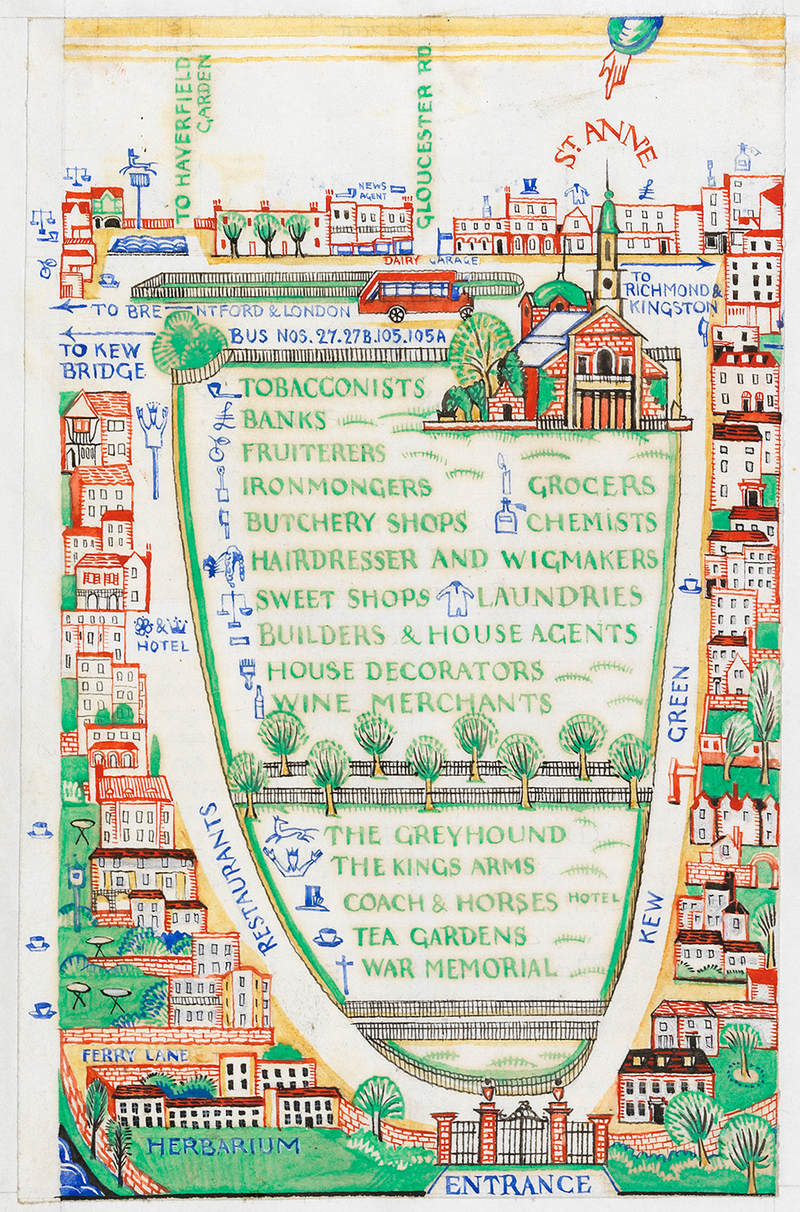 TO HAVERFIELD
GARDEN
GLOUCESTER RD.
ST. ANNE
NEWS
AGENT
£
DAIRY GARAGE
TO
RICHMOND &
KINGSTON
TO BRENTFORD & LONDON
BUS NOS. 27.27B.105.105A
TO KEW
BRIDGE
TOBACCONISTS
£ BANKS
FRUITERERS
IRONMONGERS
GROCERS
BUTCHERY SHOPS
CHEMISTS
HAIRDRESSER AND WIGMAKERS
SWEET SHOPS
LAUNDRIES
BUILDERS & HOUSE AGENTS
HOUSE DECORATORS
WINE MERCHANTS
&
HOTEL
KEW GREEN
RESTAURANTS
THE GREYHOUND
THE KINGS ARMS
COACH & HORSES HOTEL
TEA GARDENS
WAR MEMORIAL
FERRY LANE
HERBARIUM
ENTRANCE